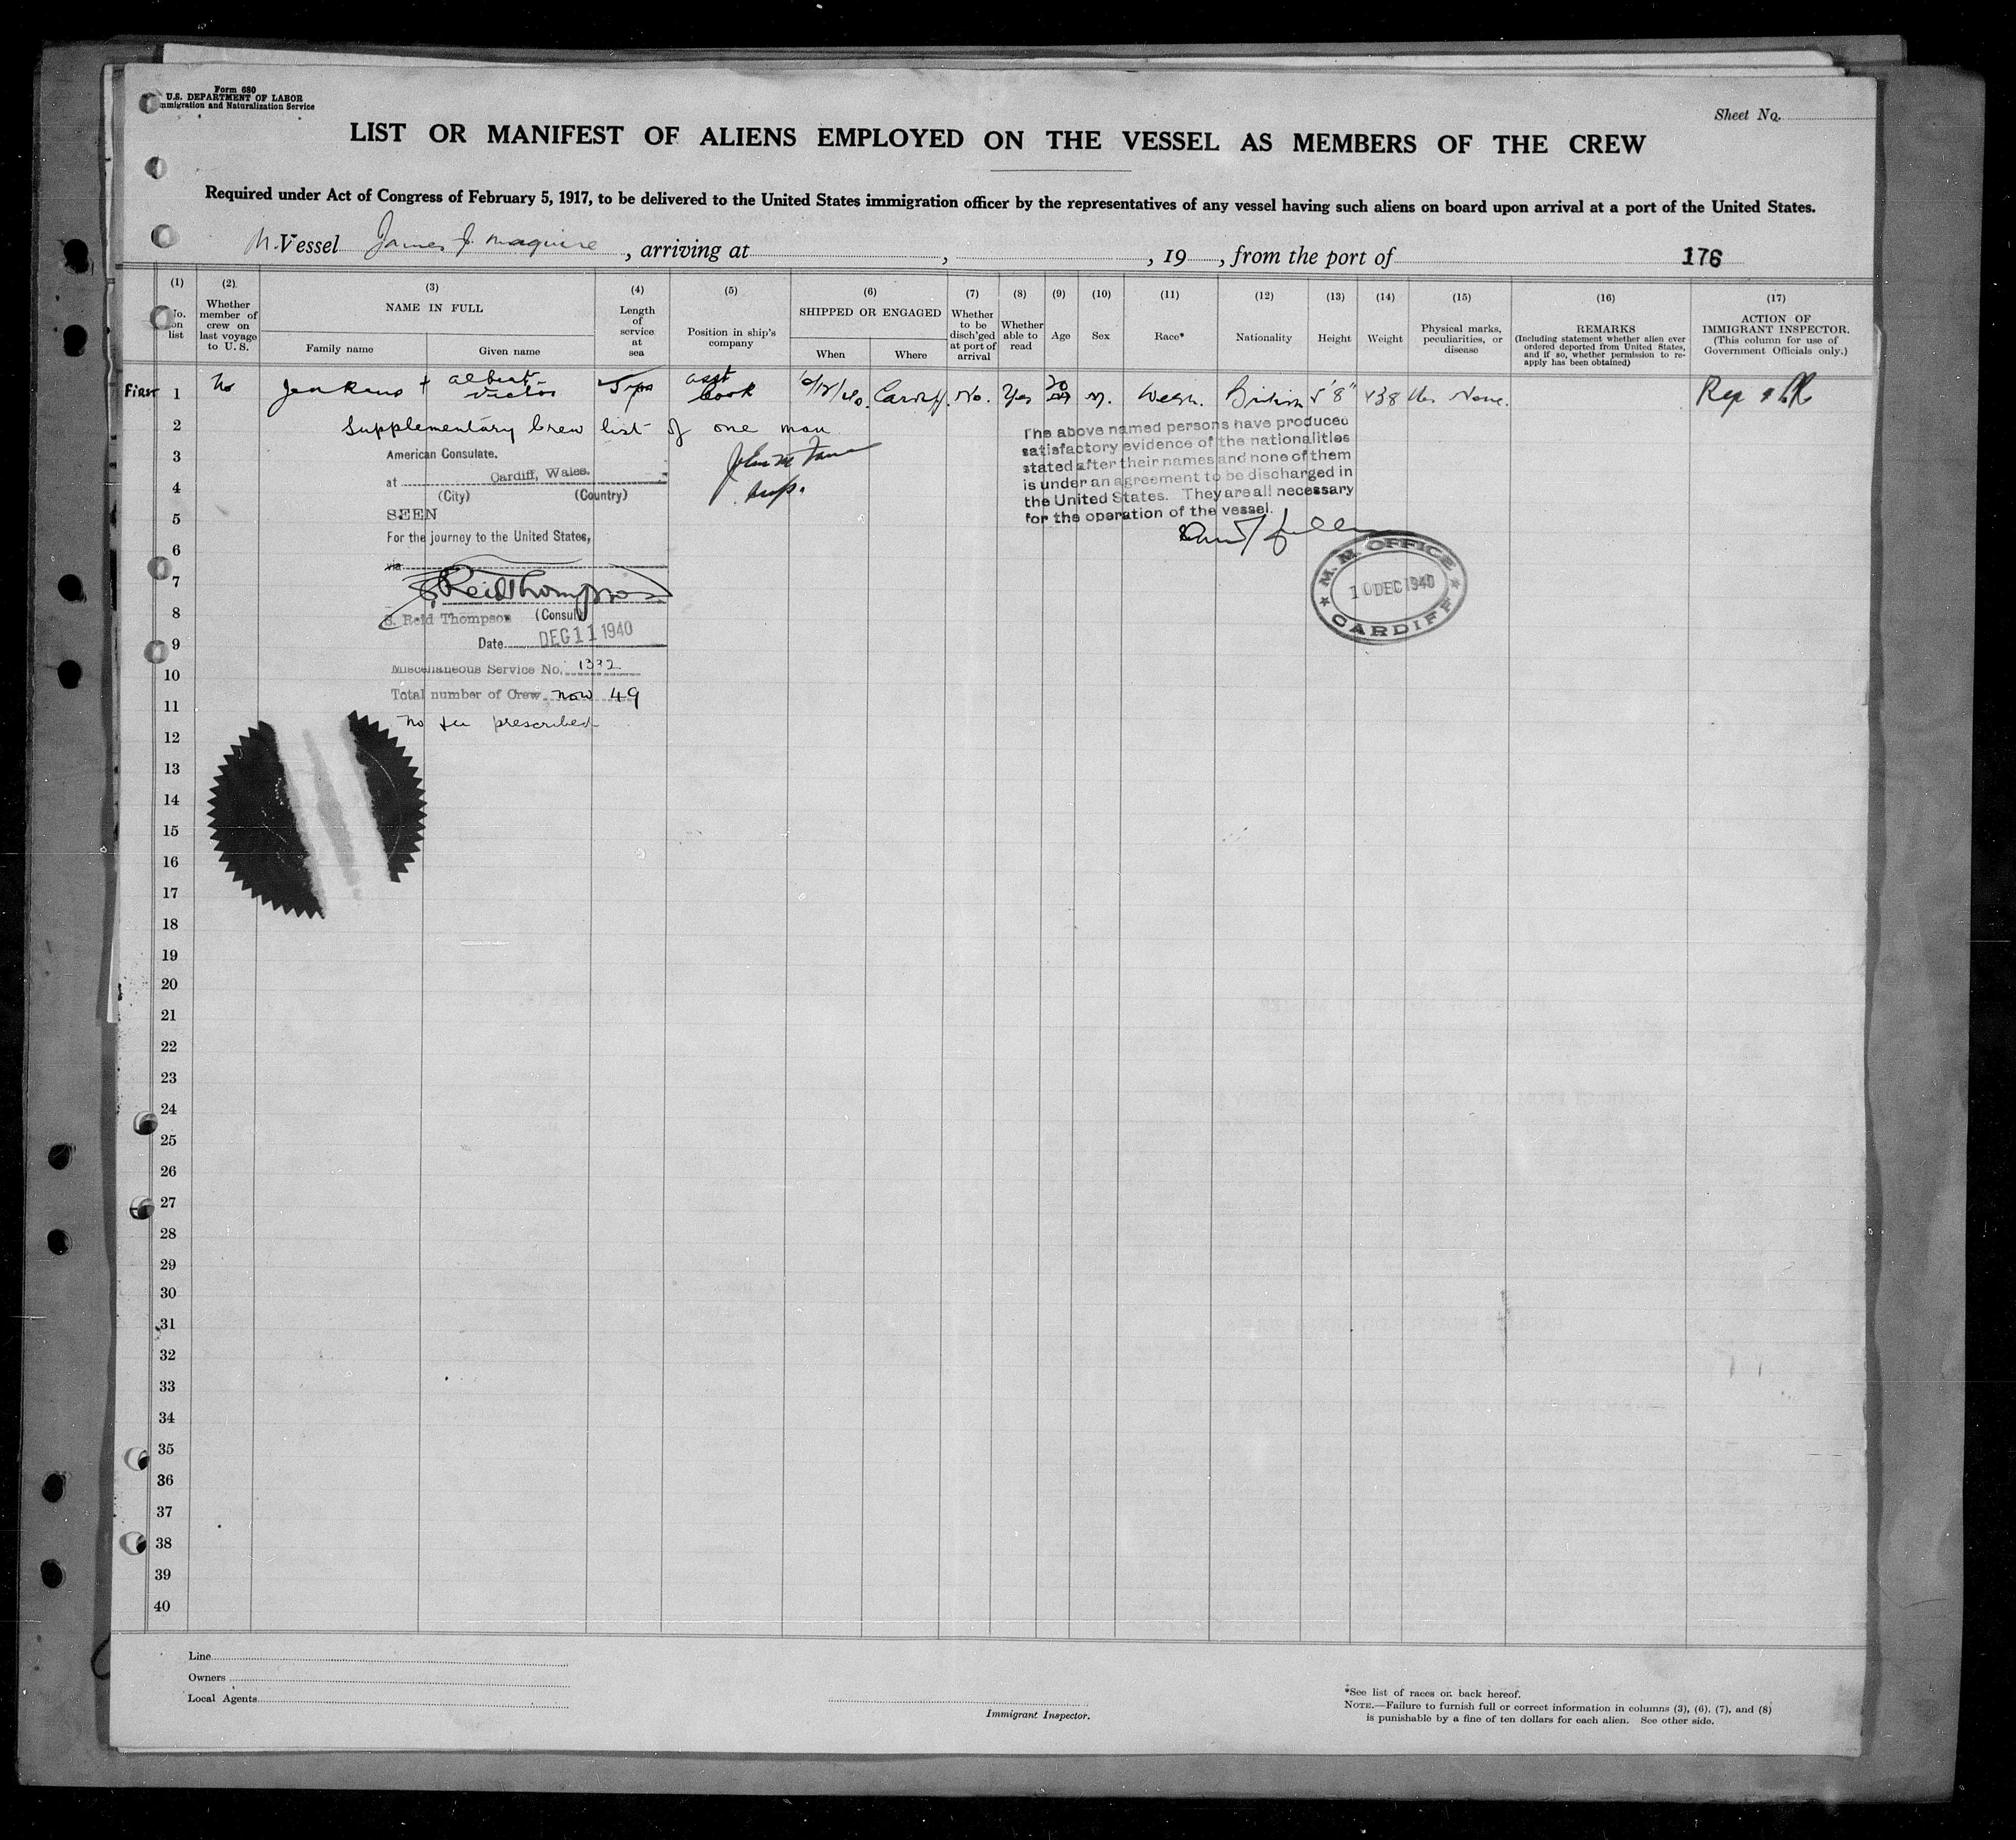 Form 680
U.S. DEPARTMENT OF LABOR
Immigration and Naturalization Service
Sheet No.
LIST OR MANIFEST OF ALIENS EMPLOYED ON THE VESSEL AS MEMBERS OF THE CREW
Required under Act of Congress of February 5, 1917, to be delivered to the United States immigration officer by the representatives of any vessel having such aliens on board upon arrival at a port of the United States.
M. Vessel James J. Maguire, arriving at , , 19 , from the port of 176
(1) (2) (3) (4) (5) (6) (7) (8) (9) (10) (11) (12) (13) (14) (15) (16) (17)
No. on list
Whether member of crew on last voyage to U. S.
NAME IN FULL
Family name
Given name
Length of service at sea
Position in ship's company
SHIPPED OR ENGAGED
When
Where
Whether to be disch'ged at port of arrival
Whether able to read
Age
Sex
Race*
Nationality
Height
Weight
Physical marks, peculiarities, or disease
REMARKS
(Including statement whether alien ever ordered deported from United States, and if so, whether permission to reapply has been obtained)
ACTION OF IMMIGRANT INSPECTOR.
(This column for use of Government Officials only.)
First 1 No Jenkins + Albert Victor 5 yrs asst Cook Cardiff. No. Yes 20 M. Welsh. British 5'8" 138 None. Rep
2 Supplementary Crew list of one man
The above named persons have produced
satisfactory evidence of the nationalities
stated after their names and none of them
is under an agreement to be discharged in
the United States. They are all necessary
for the operation of the vessel.
3 American Consulate.
at Cardiff, Wales.
4 (City) (Country)
5 SEEN
For the journey to the United States,
6 via
M. M. OFFICE
10 DEC 1940
CARDIFF
7 S. Reid Thompson
8 S. Reid Thompson (Consul)
9 Date DEC 11 1940
10 Miscellaneous Service No. 1332
11 Total number of Crew now 49
no fee prescribed
12
13
14
15
16
17
18
19
20
21
22
23
24
25
26
27
28
29
30
31
32
33
34
35
36
37
38
39
40
Line
Owners
Local Agents
Immigrant Inspector.
*See list of races on back hereof.
NOTE.—Failure to furnish full or correct information in columns (3), (6), (7), and (8)
is punishable by a fine of ten dollars for each alien. See other side.